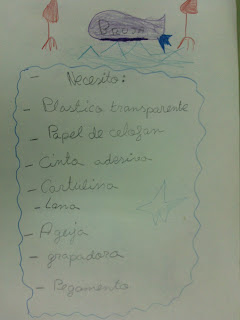 Necesito:
- Plastico transparente
- Papel de celofan
- Cinta adesiva
- Cartulina
- Lana
- Ageja
- grapadora
- Pegamento